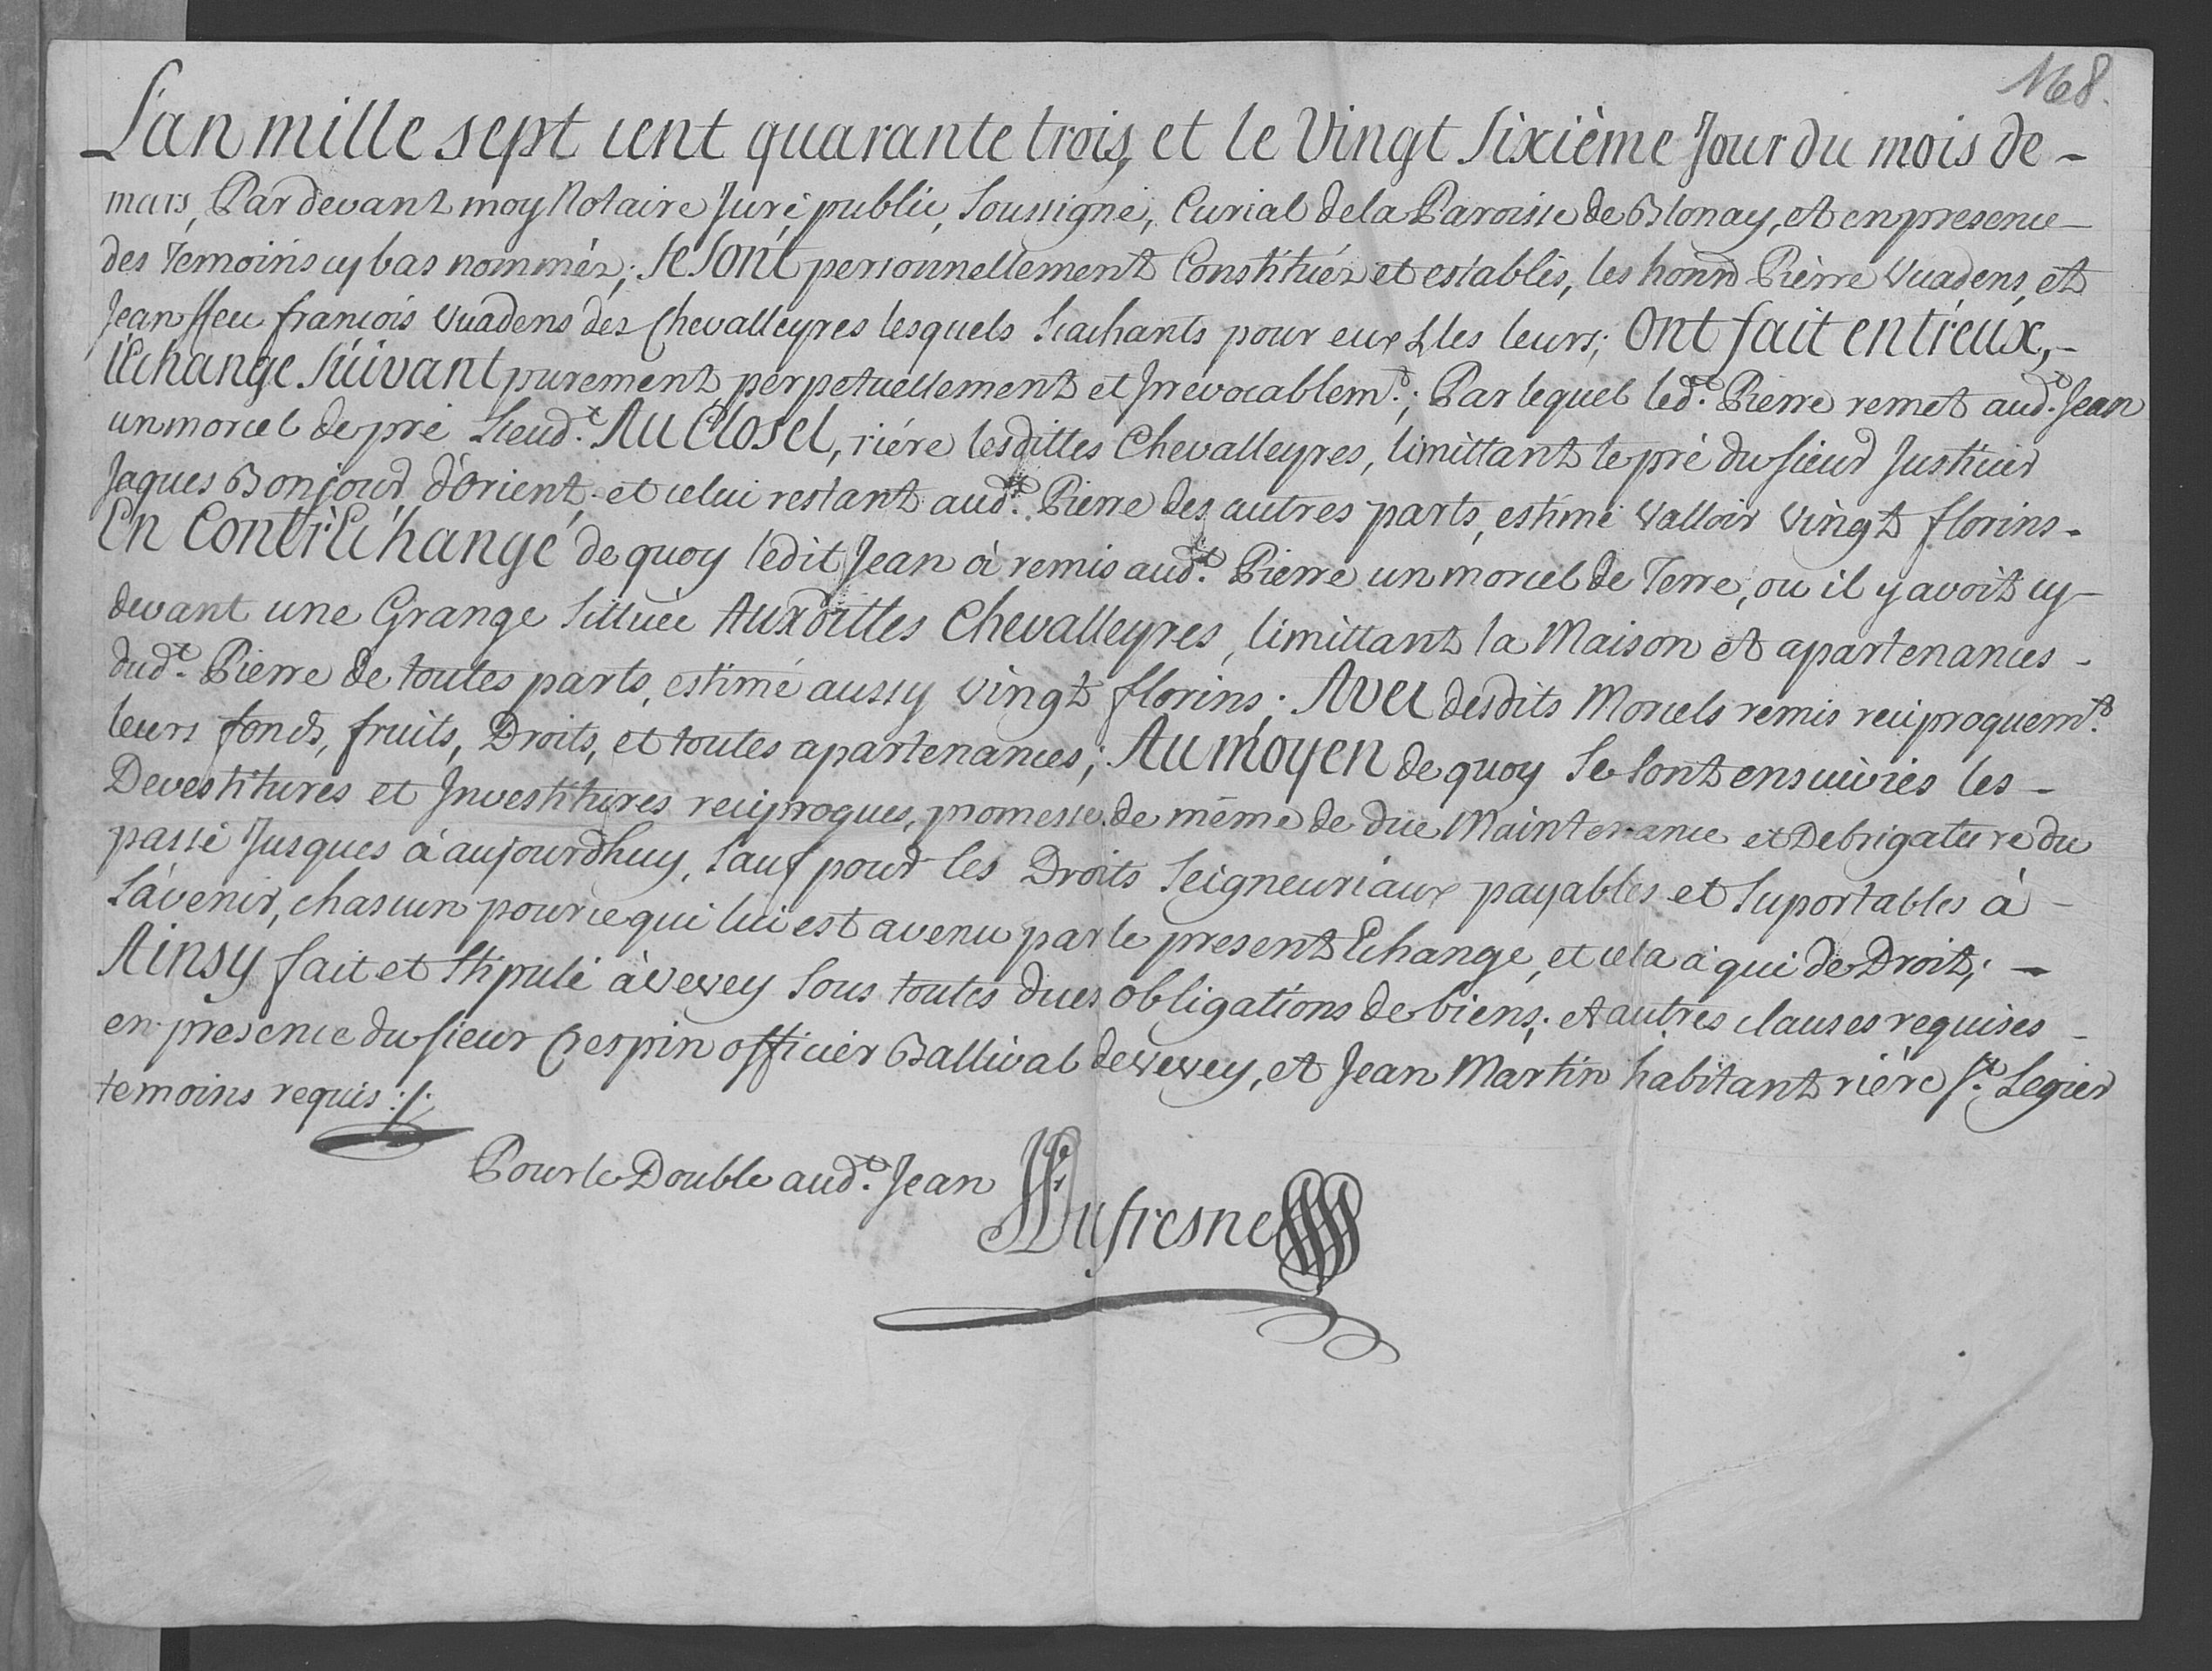 168.
L'an mille sept cent quarante trois, et le Vingt Sixième Jour du mois de -
mars, Par devant moy Notaire Juré, public, Soussigné, Curial de la Paroisse de Blonay, et en presence
des Temoins cy bas nommés; Se Sont personnellement Constitués et establis, les honn.d Pierre Vuadens, et
Jean ffeu francois Vuadens des Chevalleyres lesquels Scachants pour eux & les leurs; Ont fait entr'eux, -
l'Echange Suivant purement, perpetuellement et Irrevocablem.t; Par lequel led.t Pierre remet aud.t Jean
un morcel de pré Lieud.t Au Closel, riére lesdittes Chevalleyres, limittant le pré du Sieur Justicier
Jaques Bonjour d'Orient, et celui restant aud.t Pierre des autres parts, estimé Valloir Vingt florins -
En Contr'Echange de quoy ledit Jean à remis aud.t Pierre un morcel de Terre, ou il y avoit cy
devant une Grange Sittuée Auxdittes Chevalleyres, limittant la Maison et apartenances -
dud.t Pierre de toutes parts, estimé aussy Vingt florins; Avec desdits Morcels remis reciproquem.t
leurs fonds, fruits, Droits, et toutes apartenances; Au moyen de quoy Se Sont ensuivies les -
Devestitures et Investitures reciproques, promesse de même de due Maintenance et Debrigature du
passé Jusques à aujourdhuy, Sauf pour les Droits Seigneuriaux payables et Suportables à -
L'avenir, chascun pour ce qui lui est avenu par le present Echange, et cela à qui de Droit; -
Ainsy fait et Stipulé à Vevey Sous toutes dues obligations de biens; et autres clauses requises -
en presence du Sieur Crespin officier Ballival de Vevey, et Jean Martin habitant riére S.t Legier
temoins requis ./.
Pour le Double aud.t Jean
Dufresne